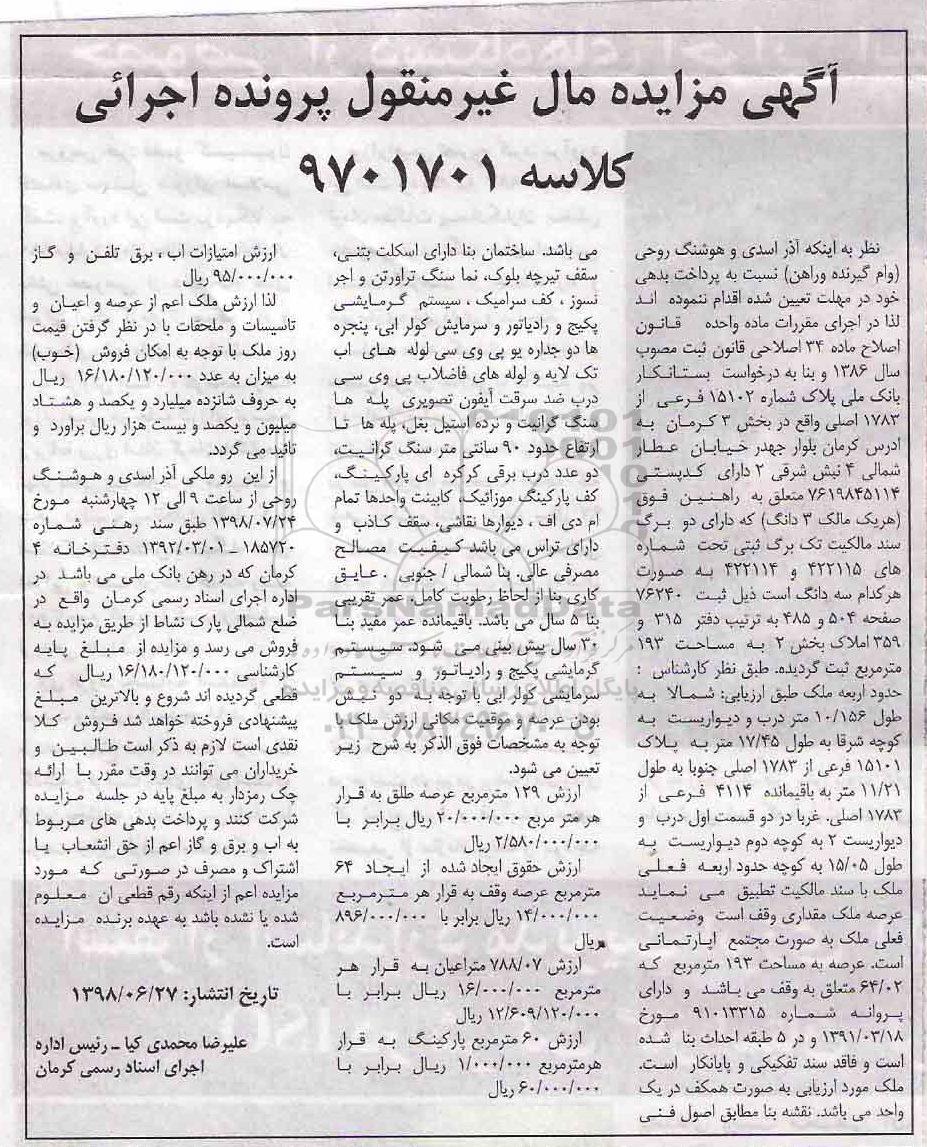 آگهی مزایده مال غیرمنقول پرونده اجرائی
کلاسه ۹۷۰۱۷۰۱
نظر به اینکه آذر اسدی و هوشنگ روحی
(وام گیرنده وراهن) نسبت به پرداخت بدهی
خود در مهلت تعیین شده اقدام ننموده اند
لذا در اجرای مقررات ماده واحده قانون
اصلاح ماده ۳۴ اصلاحی قانون ثبت مصوب
سال ۱۳۸۶ و بنا به درخواست بستانکار
بانک ملی پلاک شماره ۱۵۱۰۲ فرعی از
۱۷۸۳ اصلی واقع در بخش ۳ کرمان به
ادرس کرمان بلوار جهدر خیابان عطار
شمالی ۴ نبش شرقی ۲ دارای کدپستی
۷۶۱۹۸۴۵۱۱۴ متعلق به راهنین فوق
(هریک مالک ۳ دانگ) که دارای دو برگ
سند مالکیت تک برگ ثبتی تحت شماره
های ۴۲۲۱۱۵ و ۴۲۲۱۱۴ به صورت
هرکدام سه دانگ است ذیل ثبت ۷۶۲۴۰
صفحه ۵۰۴ و ۴۸۵ به ترتیب دفتر ۳۱۵ و
۳۵۹ املاک بخش ۲ به مساحت ۱۹۳
مترمربع ثبت گردیده. طبق نظر کارشناس :
حدود اربعه ملک طبق ارزیابی: شمالا به
طول ۱۰/۱۵۶ متر درب و دیواریست به
کوچه شرقا به طول ۱۷/۴۵ متر به پلاک
۱۵۱۰۱ فرعی از ۱۷۸۳ اصلی جنوبا به طول
۱۱/۲۱ متر به باقیمانده ۴۱۱۴ فرعی از
۱۷۸۳ اصلی. غربا در دو قسمت اول درب و
دیواریست ۲ به کوچه دوم دیواریست به
طول ۱۵/۰۵ به کوچه حدود اربعه فعلی
ملک با سند مالکیت تطبیق می نماید
عرصه ملک مقداری وقف است وضعیت
فعلی ملک به صورت مجتمع اپارتمانی
است. عرصه به مساحت ۱۹۳ مترمربع که
۶۴/۰۲ متعلق به وقف می باشد و دارای
پروانه شماره ۹۱۰۱۳۳۱۵ مورخ
۱۳۹۱/۰۳/۱۸ و در ۵ طبقه احداث بنا شده
است و فاقد سند تفکیکی و پایانکار است.
ملک مورد ارزیابی به صورت همکف در یک
واحد می باشد. نقشه بنا مطابق اصول فنی
می باشد. ساختمان بنا دارای اسکلت بتنی،
سقف تیرچه بلوک، نما سنگ تراورتن و اجر
نسوز ، کف سرامیک ، سیستم گرمایشی
پکیج و رادیاتور و سرمایش کولر ابی، پنجره
ها دو جداره یو پی وی سی لوله های اب
تک لایه و لوله های فاضلاب پی وی سی
درب ضد سرقت آیفون تصویری پله ها
سنگ گرانیت و نرده استیل بغل، پله ها تا
ارتفاع حدود ۹۰ سانتی متر سنگ گرانیت،
دو عدد درب برقی کرکره ای پارکینگ،
کف پارکینگ موزائیک، کابینت واحدها تمام
ام دی اف ، دیوارها نقاشی، سقف کاذب و
دارای تراس می باشد کیفیت مصالح
مصرفی عالی. بنا شمالی / جنوبی . عایق
کاری بنا از لحاظ رطوبت کامل. عمر تقریبی
بنا ۵ سال می باشد. باقیمانده عمر مفید بنا
۳۰ سال پیش بینی می شود. سیستم
گرمایشی پکیج و رادیاتور و سیستم
سرمایشی کولر ابی با توجه به دو نبش
بودن عرصه و موقعیت مکانی ارزش ملک با
توجه به مشخصات فوق الذکر به شرح زیر
تعیین می شود.
ارزش ۱۲۹ مترمربع عرصه طلق به قرار
هر متر مربع ۲۰/۰۰۰/۰۰۰ ریال برابر با
۲/۵۸۰/۰۰۰/۰۰۰ ریال
ارزش حقوق ایجاد شده از ایجاد ۶۴
مترمربع عرصه وقف به قرار هر مترمربع
۱۴/۰۰۰/۰۰۰ ریال برابر با ۸۹۶/۰۰۰/۰۰۰
ریال
ارزش ۷۸۸/۰۷ متراعیان به قرار هر
مترمربع ۱۶/۰۰۰/۰۰۰ ریال برابر با
۱۲/۶۰۹/۱۲۰/۰۰۰ ریال
ارزش ۶۰ مترمربع پارکینگ به قرار
هرمترمربع ۱/۰۰۰/۰۰۰ ریال برابر با
۶۰/۰۰۰/۰۰۰ ریال
ارزش امتیازات اب ، برق تلفن و گاز
۹۵/۰۰۰/۰۰۰ ریال
لذا ارزش ملک اعم از عرصه و اعیان و
تاسیسات و ملحقات با در نظر گرفتن قیمت
روز ملک با توجه به امکان فروش (خوب)
به میزان به عدد ۱۶/۱۸۰/۱۲۰/۰۰۰ ریال
به حروف شانزده میلیارد و یکصد و هشتاد
میلیون و یکصد و بیست هزار ریال براورد و
تائید می گردد.
از این رو ملکی آذر اسدی و هوشنگ
روحی از ساعت ۹ الی ۱۲ چهارشنبه مورخ
۱۳۹۸/۰۷/۲۴ طبق سند رهنی شماره
۱۸۵۷۲۰ ـ ۱۳۹۲/۰۳/۰۱ دفترخانه ۴
کرمان که در رهن بانک ملی می باشد در
اداره اجرای اسناد رسمی کرمان واقع در
ضلع شمالی پارک نشاط از طریق مزایده به
فروش می رسد و مزایده از مبلغ پایه
کارشناسی ۱۶/۱۸۰/۱۲۰/۰۰۰ ریال که
قطعی گردیده اند شروع و بالاترین مبلغ
پیشنهادی فروخته خواهد شد فروش کلا
نقدی است لازم به ذکر است طالبین و
خریداران می توانند در وقت مقرر با ارائه
چک رمزدار به مبلغ پایه در جلسه مزایده
شرکت کنند و پرداخت بدهی های مربوط
به اب و برق و گاز اعم از حق انشعاب یا
اشتراک و مصرف در صورتی که مورد
مزایده اعم از اینکه رقم قطعی ان معلوم
شده یا نشده باشد به عهده برنده مزایده
است.
تاریخ انتشار: ۱۳۹۸/۰۶/۲۷
علیرضا محمدی کیا ـ رئیس اداره
اجرای اسناد رسمی کرمان
ParsNamadData